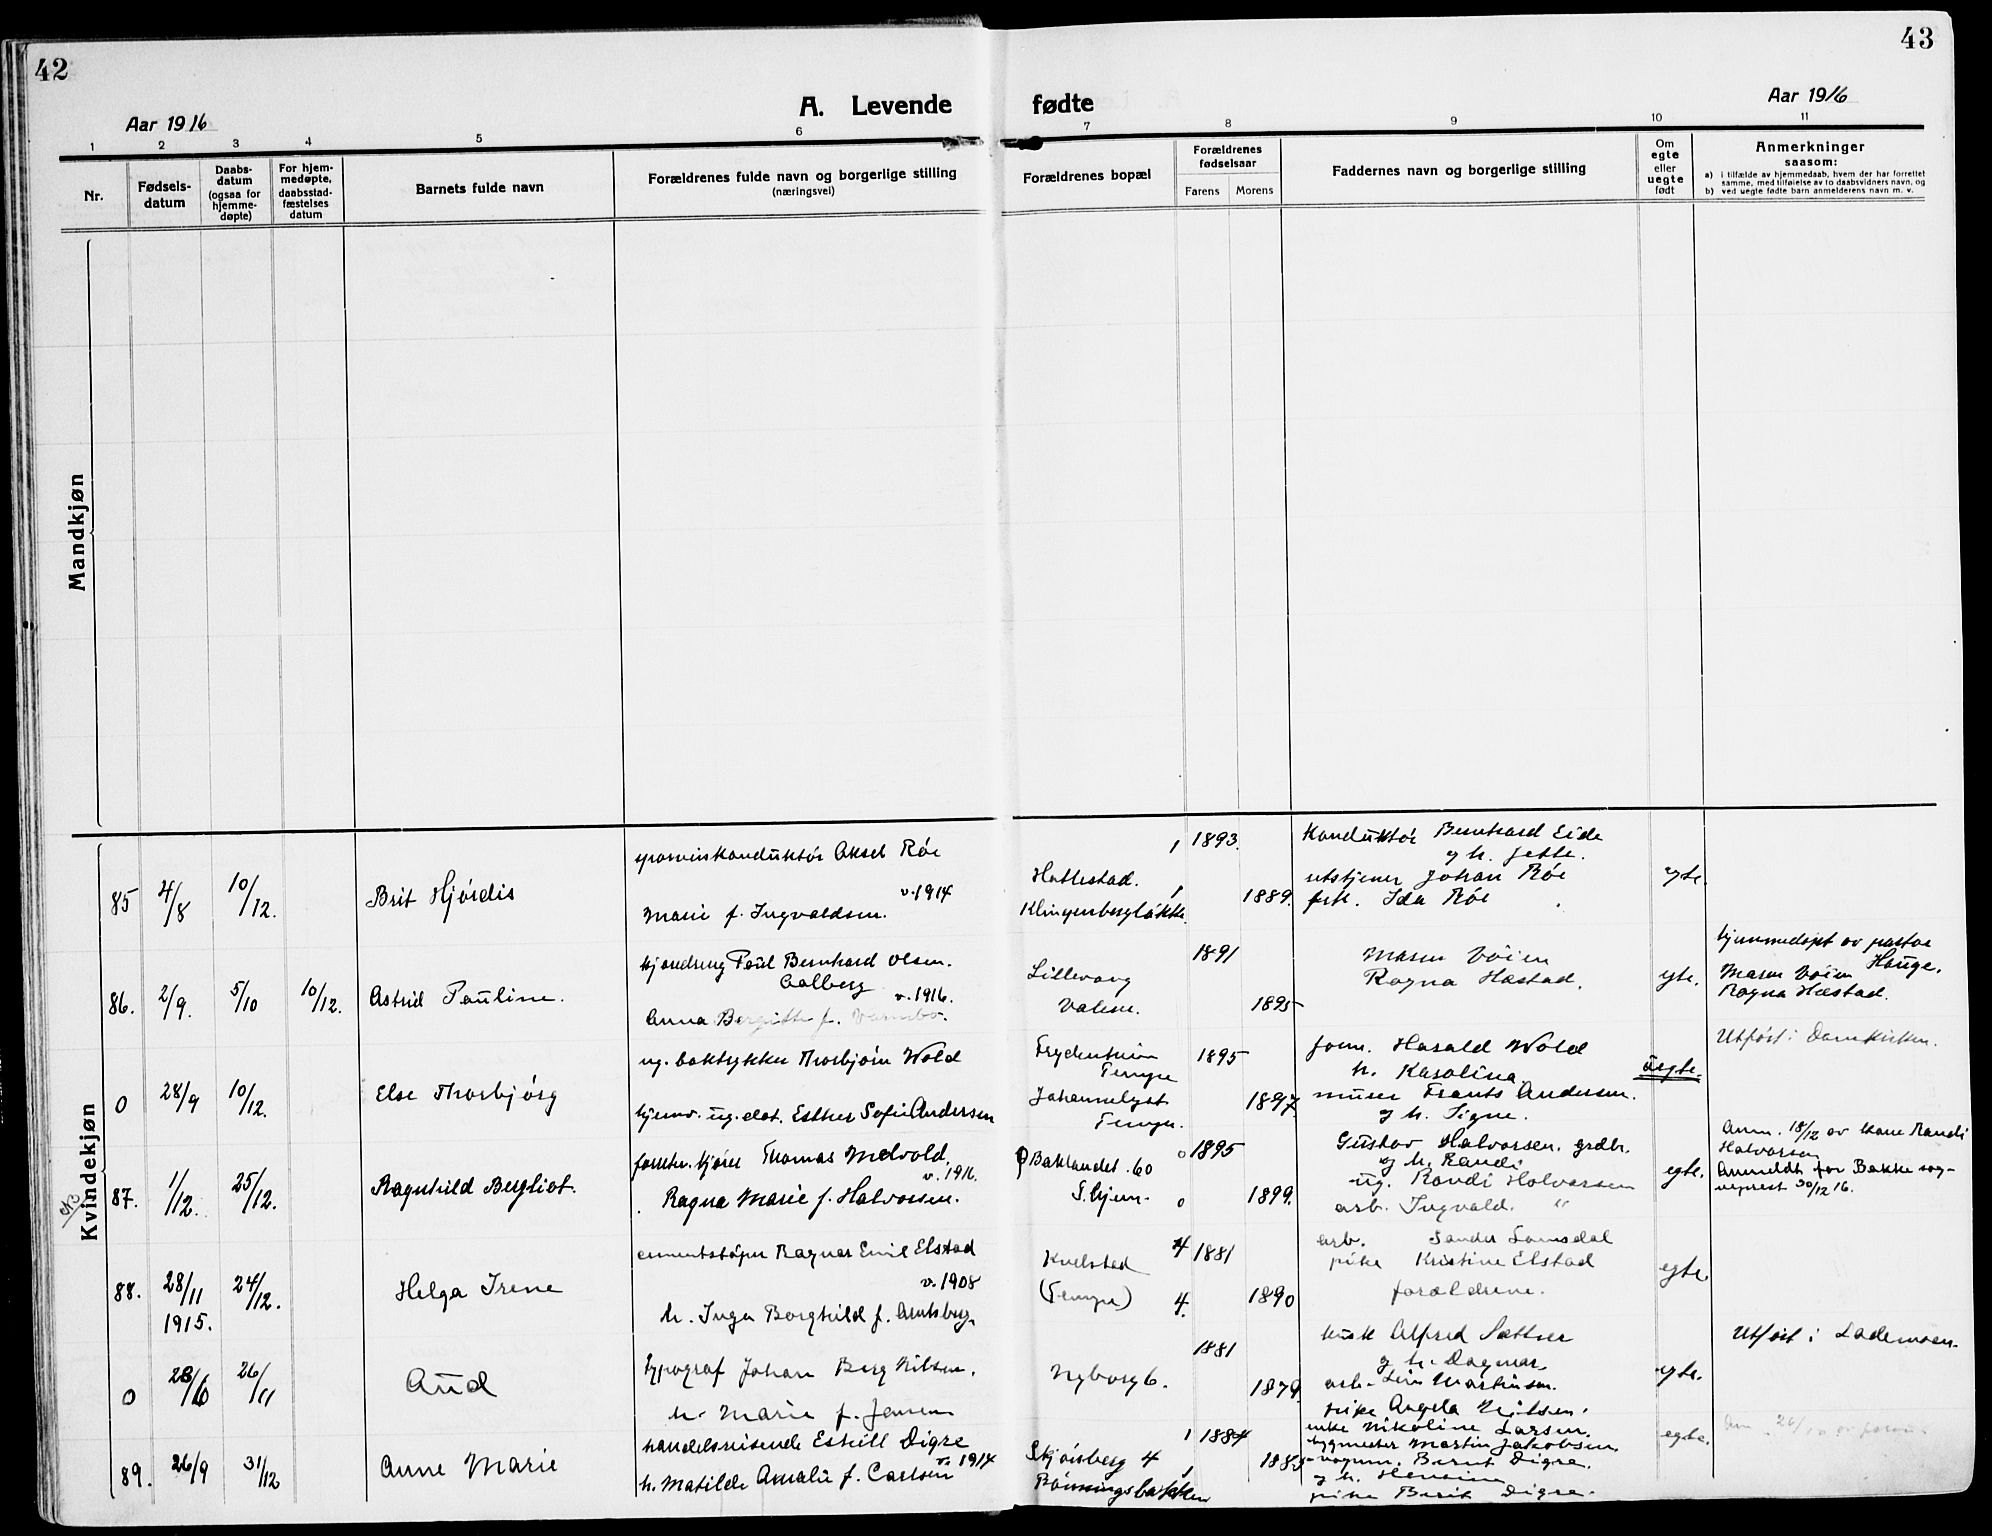 42
43
A. Levende fødte
Aar 1916
Aar 1916
1 2 3 4 5 6 7 8 9 10 11
Nr.
Fødsels-
datum
Daabs-
datum
(ogsaa for
hjemme-
døpte)
For hjem-
medøpte,
daabsstad-
fæstelses
datum
Barnets fulde navn
Forældrenes fulde navn og borgerlige stilling
(næringsvei)
Forældrenes bopæl
Forældrenes
fødselsaar
Farens Morens
Faddernes navn og borgerlige stilling
Om
egte
eller
uegte
født
Anmerkninger
saasom:
a) i tilfælde av hjemmedaab, hvem der har forrettet
samme, med tilføielse av to daabsvidners navn, og
b) ved uegte fødte barn anmelderens navn m. v.
Mandkjøn
Kvindekjøn
85 4/8 10/12. Brit Hjørdis
sporveiskonduktør Aksel Røe
v. 1914
Marie f. Ingvaldsen.
Hallestad.
Klingenbergløkke.
1 1893.
1 1889.
Konduktør Bernhard Eide
og h. Jette.
Johan Røe
frk. Ida Røe
egte.
86. 2/9. 5/10 10/12. Astrid Pauline.
Paul Bernhard Olsen.
Aalberg
v. 1916.
Anna Bergitte f.
Lillevang
Valene.
1891
1895
Maren Vöien
Ragna Hæstad.
egte.
hjemmedøpt av pastor
Hauge.
Maren Vöien
Ragna Hæstad.
0 28/9 10/12. Else Thorbjørg
ug. boktrykker Thorbjørn Wold
hjemv. ug. dat. Esther Sofie Andersen
Frydenheim
Tempe
Johannelyst
Tempe.
1895
1897
form. Harald Wold
h. Karolina.
murer Frants Andersen.
og h. Signe.
uegte.
Utført i Domkirken.
87. 1/12. 25/12. Ragnhild Bergliot.
Thomas Melvold.
v. 1916.
Ragna Marie f. Halvorsen.
Baklandet. 60
S. hjem.
0 1895
0 1899.
Gustav Halvorsen, grdbr.
og h. Randi
ug. Randi Halvorsen
arb. Ingvald. "
egte.
Anm. 18/12 av kone Randi
Halvorsen
Anmeldt for Bakke sog-
neprest 30/12 16.
88. 28/11 1915. 24/12. Helga Irene
cementstøper Ragnar Emil Elstad
v. 1908
h. Inga Borghild f. Arntsberg.
Kvelstad
(Tempe)
4 1881
4. 1890
arb. Sander Lomsdal
pike Kristine Elstad
forældrene.
egte.
0 28/6 26/11 Aud
typograf Johan Berg Nilsen.
h. Marie f. Jensen
Nyborg 6.
1881
1879
kusk Alfred Sættrer
og h. Dagmar
arb. Martinsen.
pike Angela Nilsen.
egte.
Utført i Lademoen.
89. 26/9 31/12 Anne Marie
handelsreisende Eskill Digre
v. 1914
h. Matilde Amalie f. Carlsen
Skjøisberg 4
Rønningsbakken
1 1884
1 1885
enke Nikoline Larsen.
bygmester Martin Jakobsen
Bernt Digre.
og h.
pike Berit Digre.
egte.